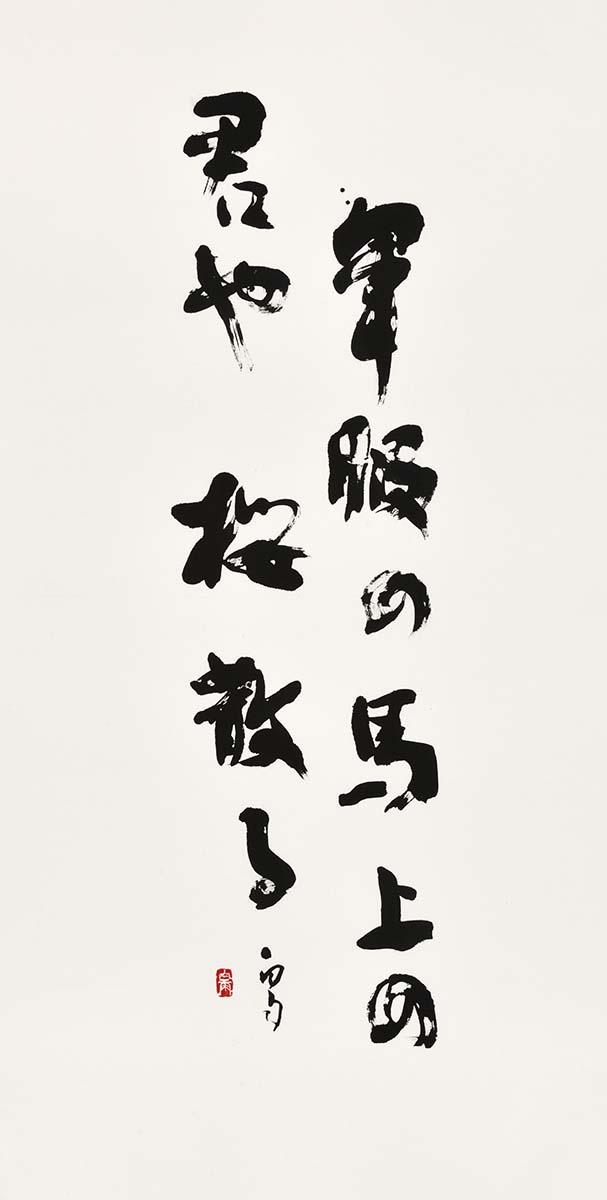 軍服の馬上の
君や 桜散る